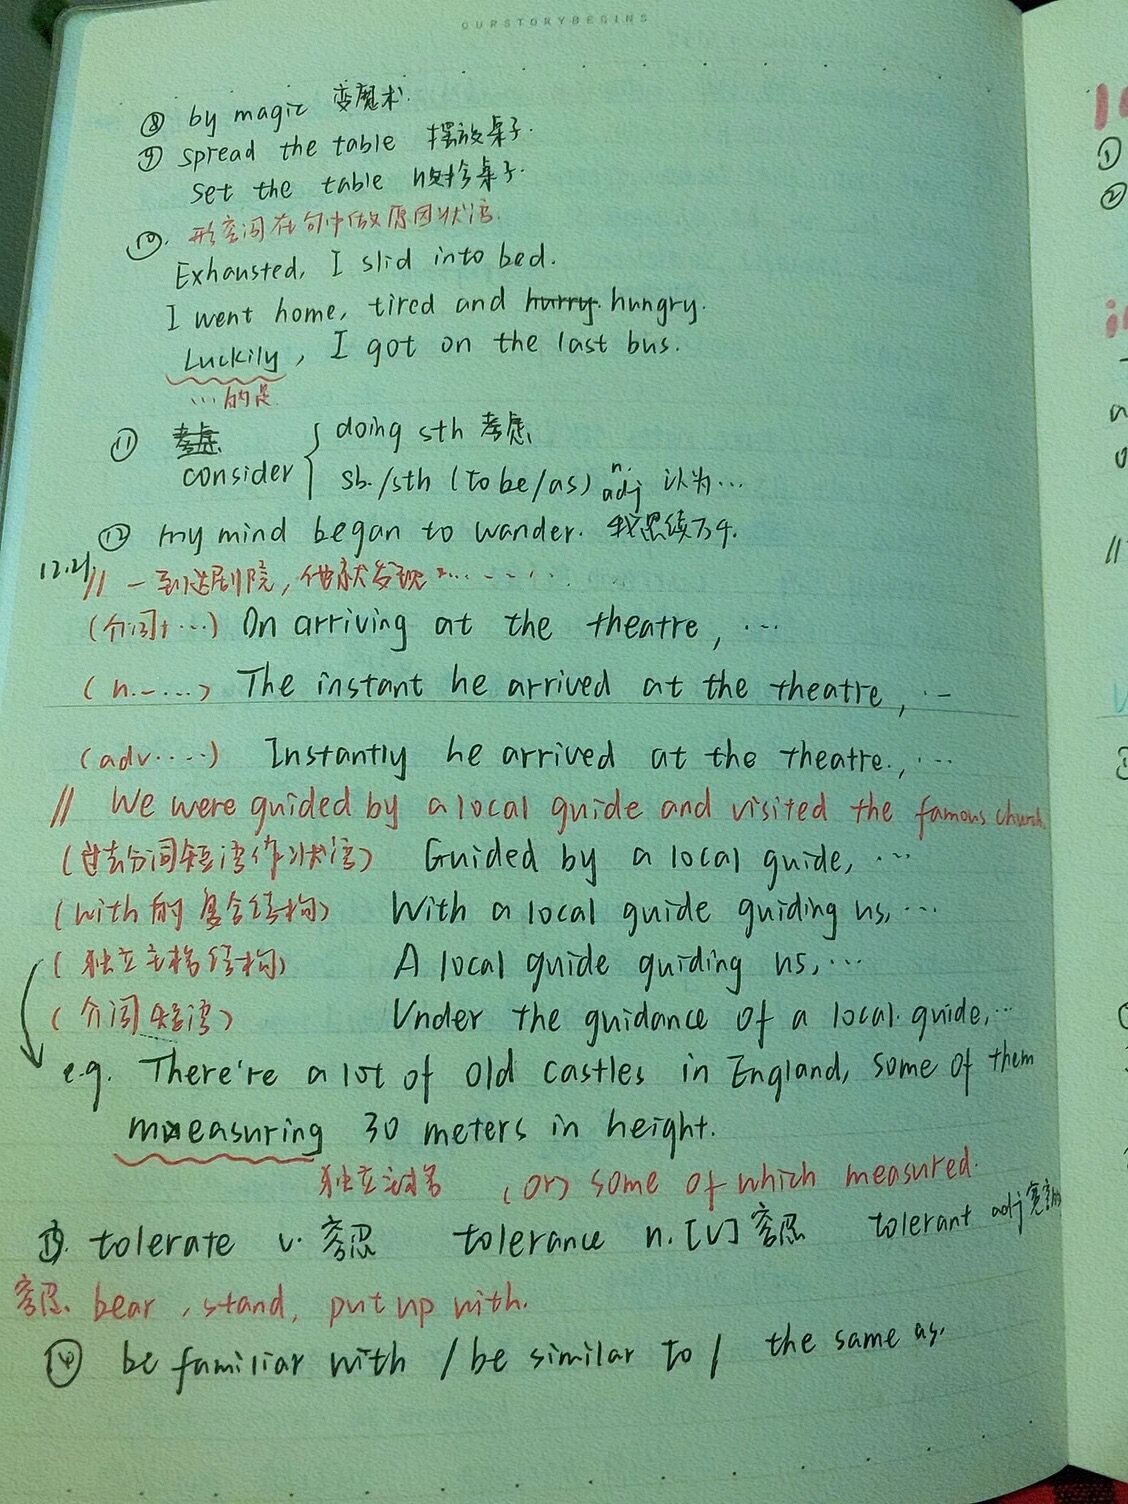 OURSTORYBEGINS
⑧ by magic 变魔术.
⑨ spread the table 摆放桌子.
set the table 收拾桌子.
⑩. 形容词在句中做原因状语.
Exhausted, I slid into bed.
I went home, tired and hurry. hungry.
Luckily, I got on the last bus.
…的是
⑪ 考虑 doing sth 考虑
consider sb./sth (to be/as) n. adj 认为…
⑫ my mind began to wander. 我思绪万千.
12.21.
// 一到达剧院, 他就发现……
(介词+…) On arriving at the theatre, …
(n.…) The instant he arrived at the theatre, …
(adv.…) Instantly he arrived at the theatre., …
// We were guided by a local guide and visited the famous church.
(过去分词短语作状语) Guided by a local guide, …
(with的复合结构) With a local guide guiding us, …
(独立主格结构) A local guide guiding us, …
(介词短语) Under the guidance of a local guide, …
e.g. There're a lot of old castles in England, some of them
measuring 30 meters in height.
独立主格 (or) some of which measured.
⑬. tolerate v. 容忍 tolerance n. [U] 容忍 tolerant adj 宽容的
容忍. bear, stand, put up with.
⑭ be familiar with / be similar to / the same as.
①
②
//